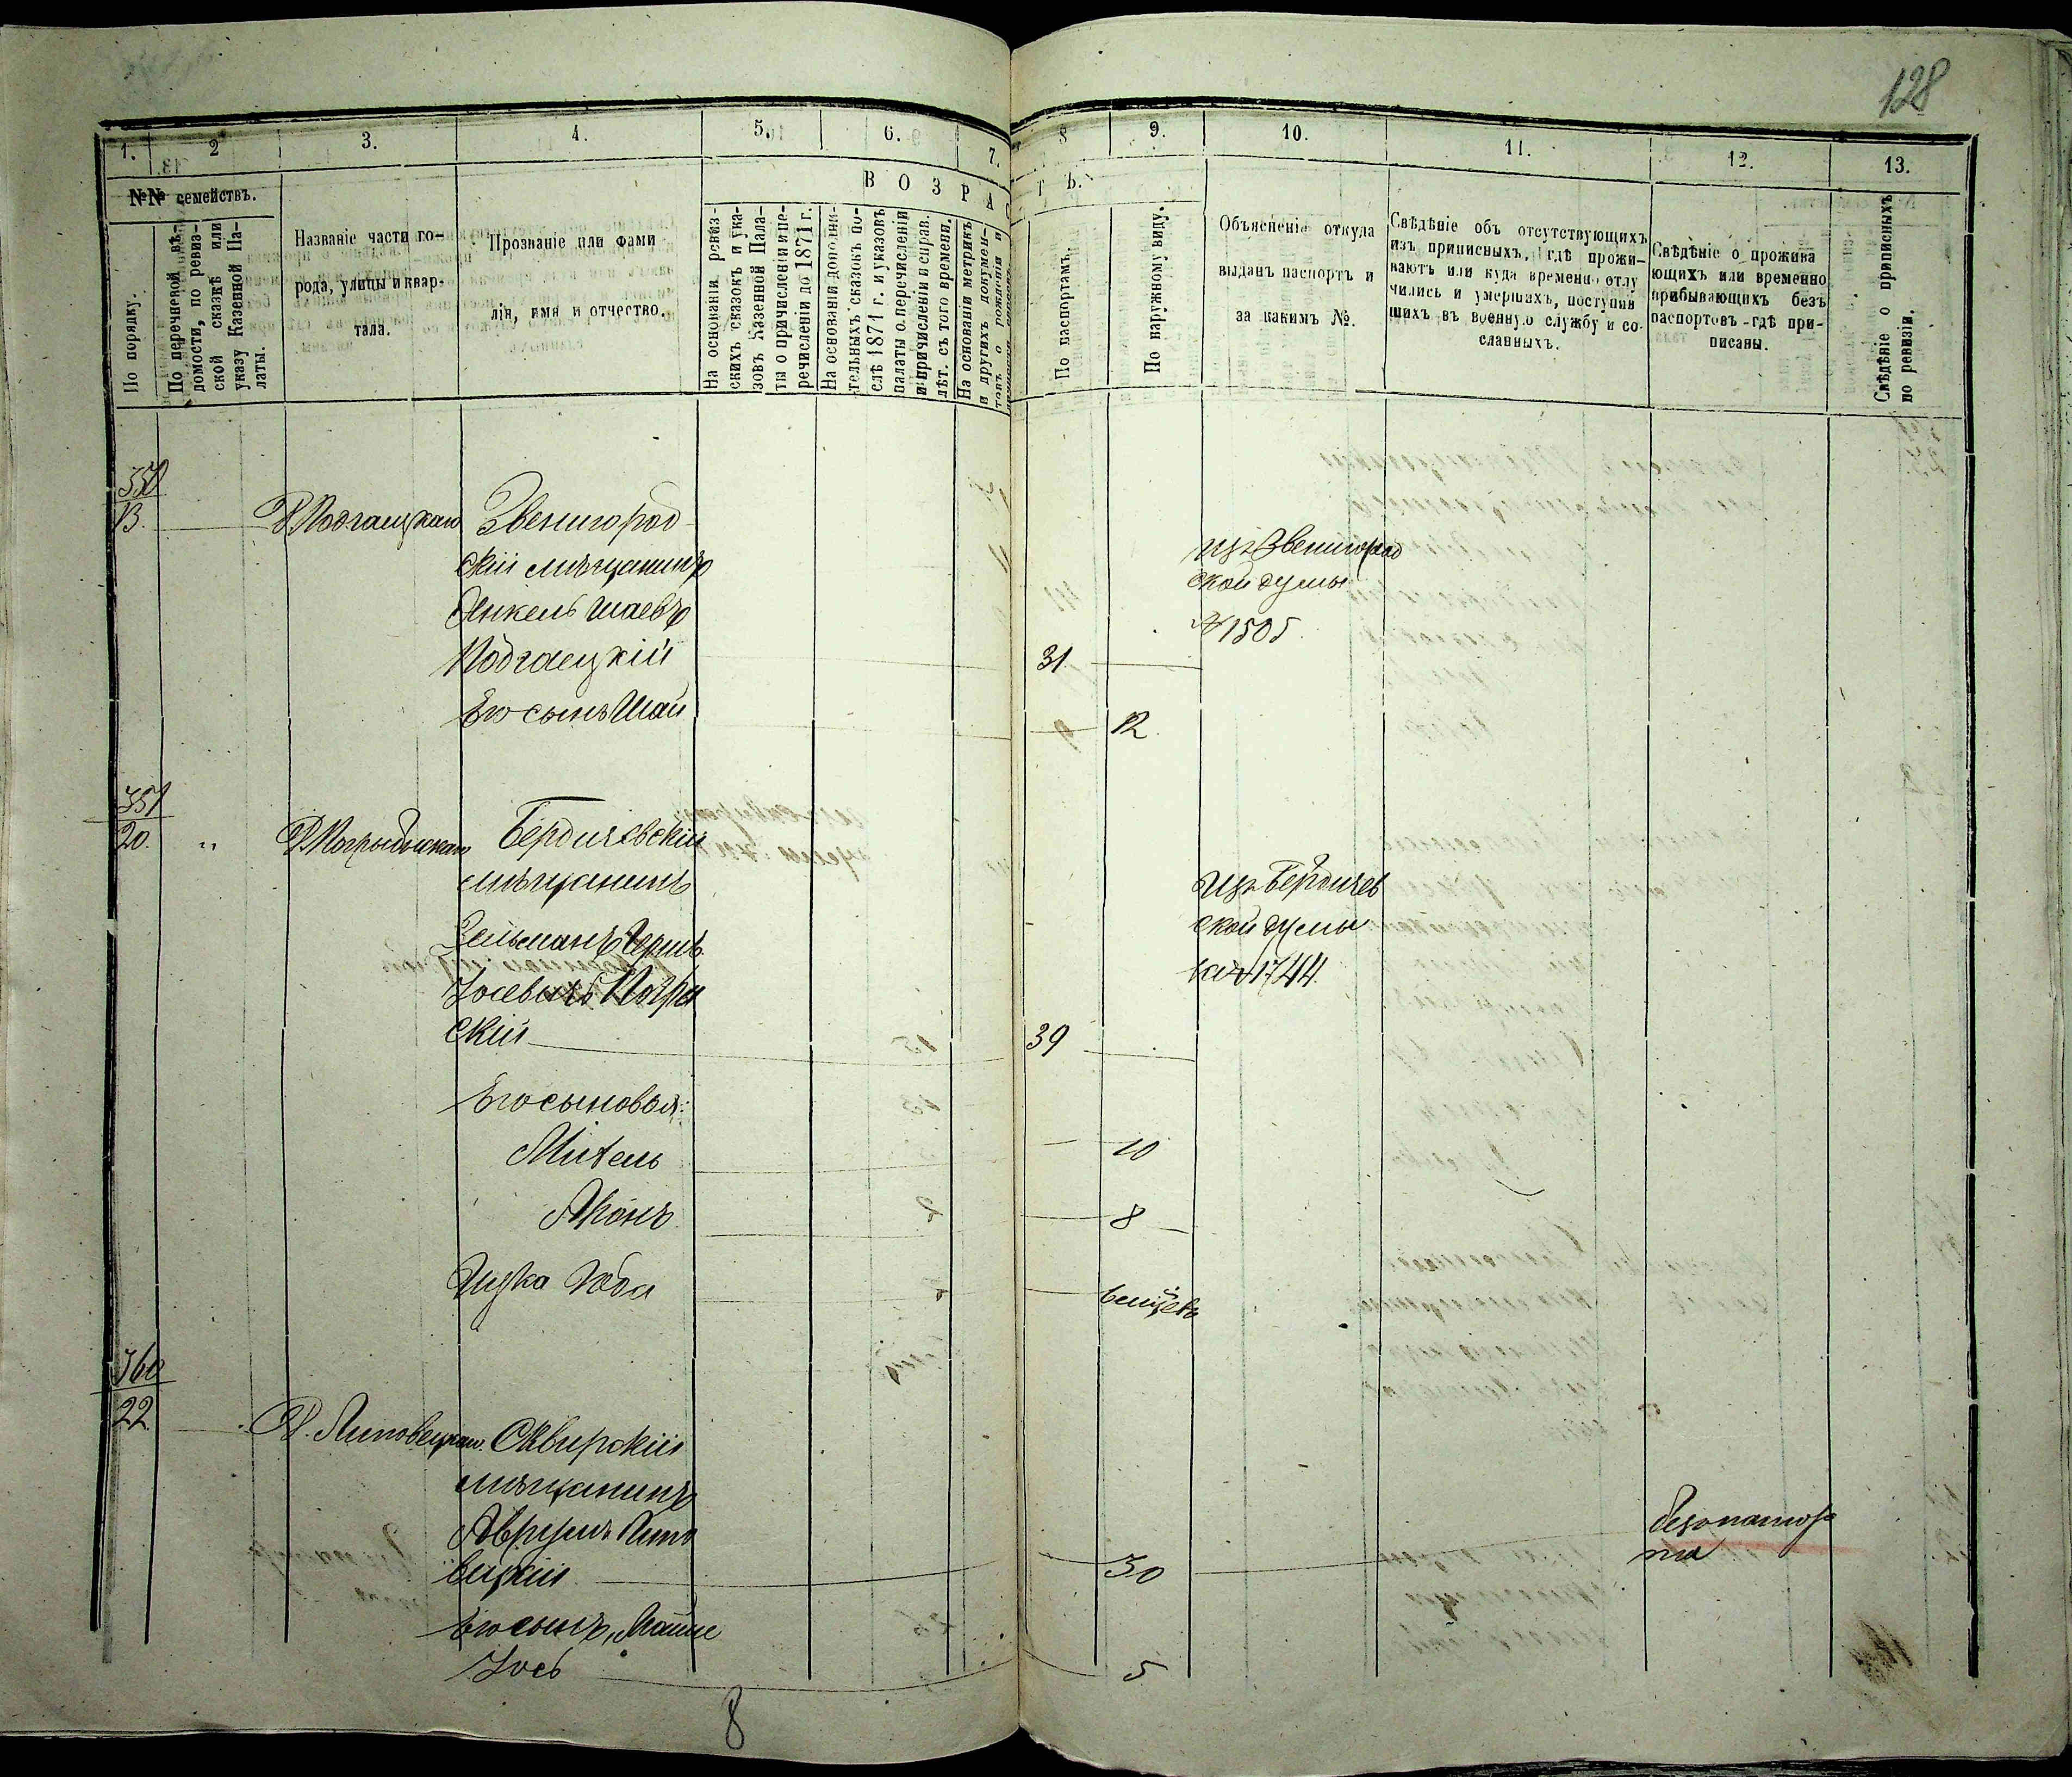 128
1.
2
3.
4.
5.
6.
7.
8
9.
10.
11.
12.
13.
№№ семействъ.
По порядку.
По перечневой вѣ-
домости, по ревиз-
ской сказкѣ или
указу Казенной Па-
латы.
Названіе части го-
рода, улицы и квар-
тала.
Прозваніе или фами
лія, имя и отчество.
ВОЗРА
ТЪ.
На основаніи ревиз-
скихъ сказокъ и ука-
зовъ Казенной Пала-
ты о причисленіи и пе-
речисленіи до 1871 г.
На основаніи дополни-
тельныхъ сказокъ по-
слѣ 1871 г. и указовъ
палаты о перечисленіи
и причисленіи и справ.
лѣт. съ того времени.
На основаніи метрикъ
и другихъ докумен-
товъ о рожденіи и
По паспортамъ.
По наружному виду.
Объясненіе откуда
выданъ паспортъ и
за какимъ №.
Свѣдѣніе объ отсутствующихъ
изъ приписныхъ, гдѣ прожи-
ваютъ или куда временно отлу
чились и умершихъ, поступив
шихъ въ военную службу и со-
сланныхъ.
Свѣдѣніе о прожива
ющихъ или временно
прибывающихъ безъ
паспортовъ-гдѣ при-
писаны.
Свѣдѣніе о приписныхъ
по ревизіи.
13.
Д. Подгаецкаго
Звенигород
скій мѣщанинъ
Янкель Шаевъ
Подгаецкій
31.
Его сынъ Шая
12
изъ Звенигород
ской думы
№1505
20.
"
Бердичевскій
мѣщанинъ
Зельманъ Герш
скій
39
Изъ Бердичев
ской думы
за №1744.
Его сыновья:
10
8
Ицко
360
22.
Д. Липовецкаго
Сквирскій
мѣщанинъ
Аврумъ Липо
вецкій
30
безъ паспор
та
Его сынъ, Мойше
Іось
5
8